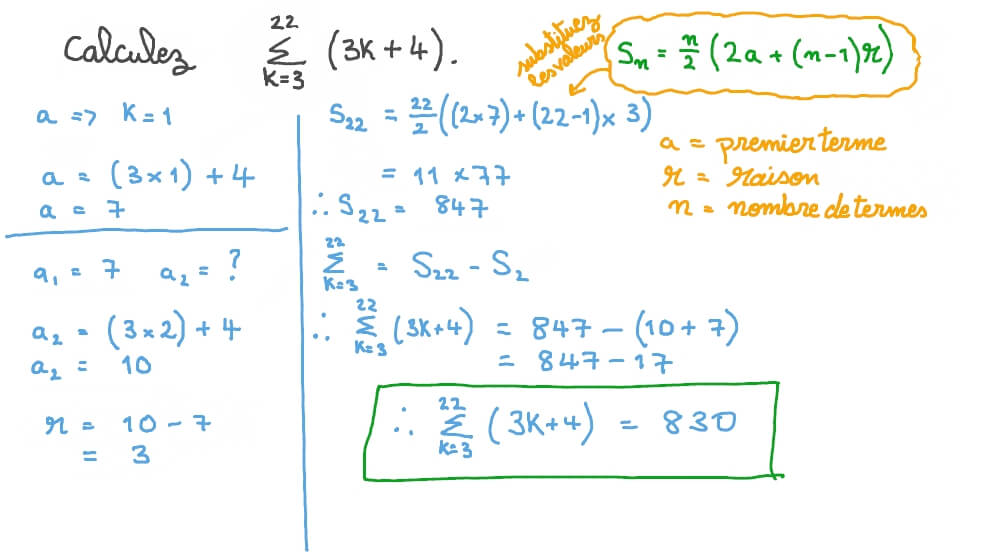 Calculez 22 Σ K=3 (3K+4).
substituez les valeurs
Sn = n/2 (2a + (n-1)r)
a = premier terme
r = raison
n = nombre de termes
a => K=1
a = (3×1)+4
a = 7
a₁ = 7 a₂ = ?
a₂ = (3×2)+4
a₂ = 10
r = 10-7
= 3
S₂₂ = 22/2((2×7)+(22-1)×3)
= 11×77
∴ S₂₂ = 847
22 Σ K=3 = S₂₂ - S₂
∴ 22 Σ K=3 (3K+4) = 847-(10+7)
= 847-17
∴ 22 Σ K=3 (3K+4) = 830